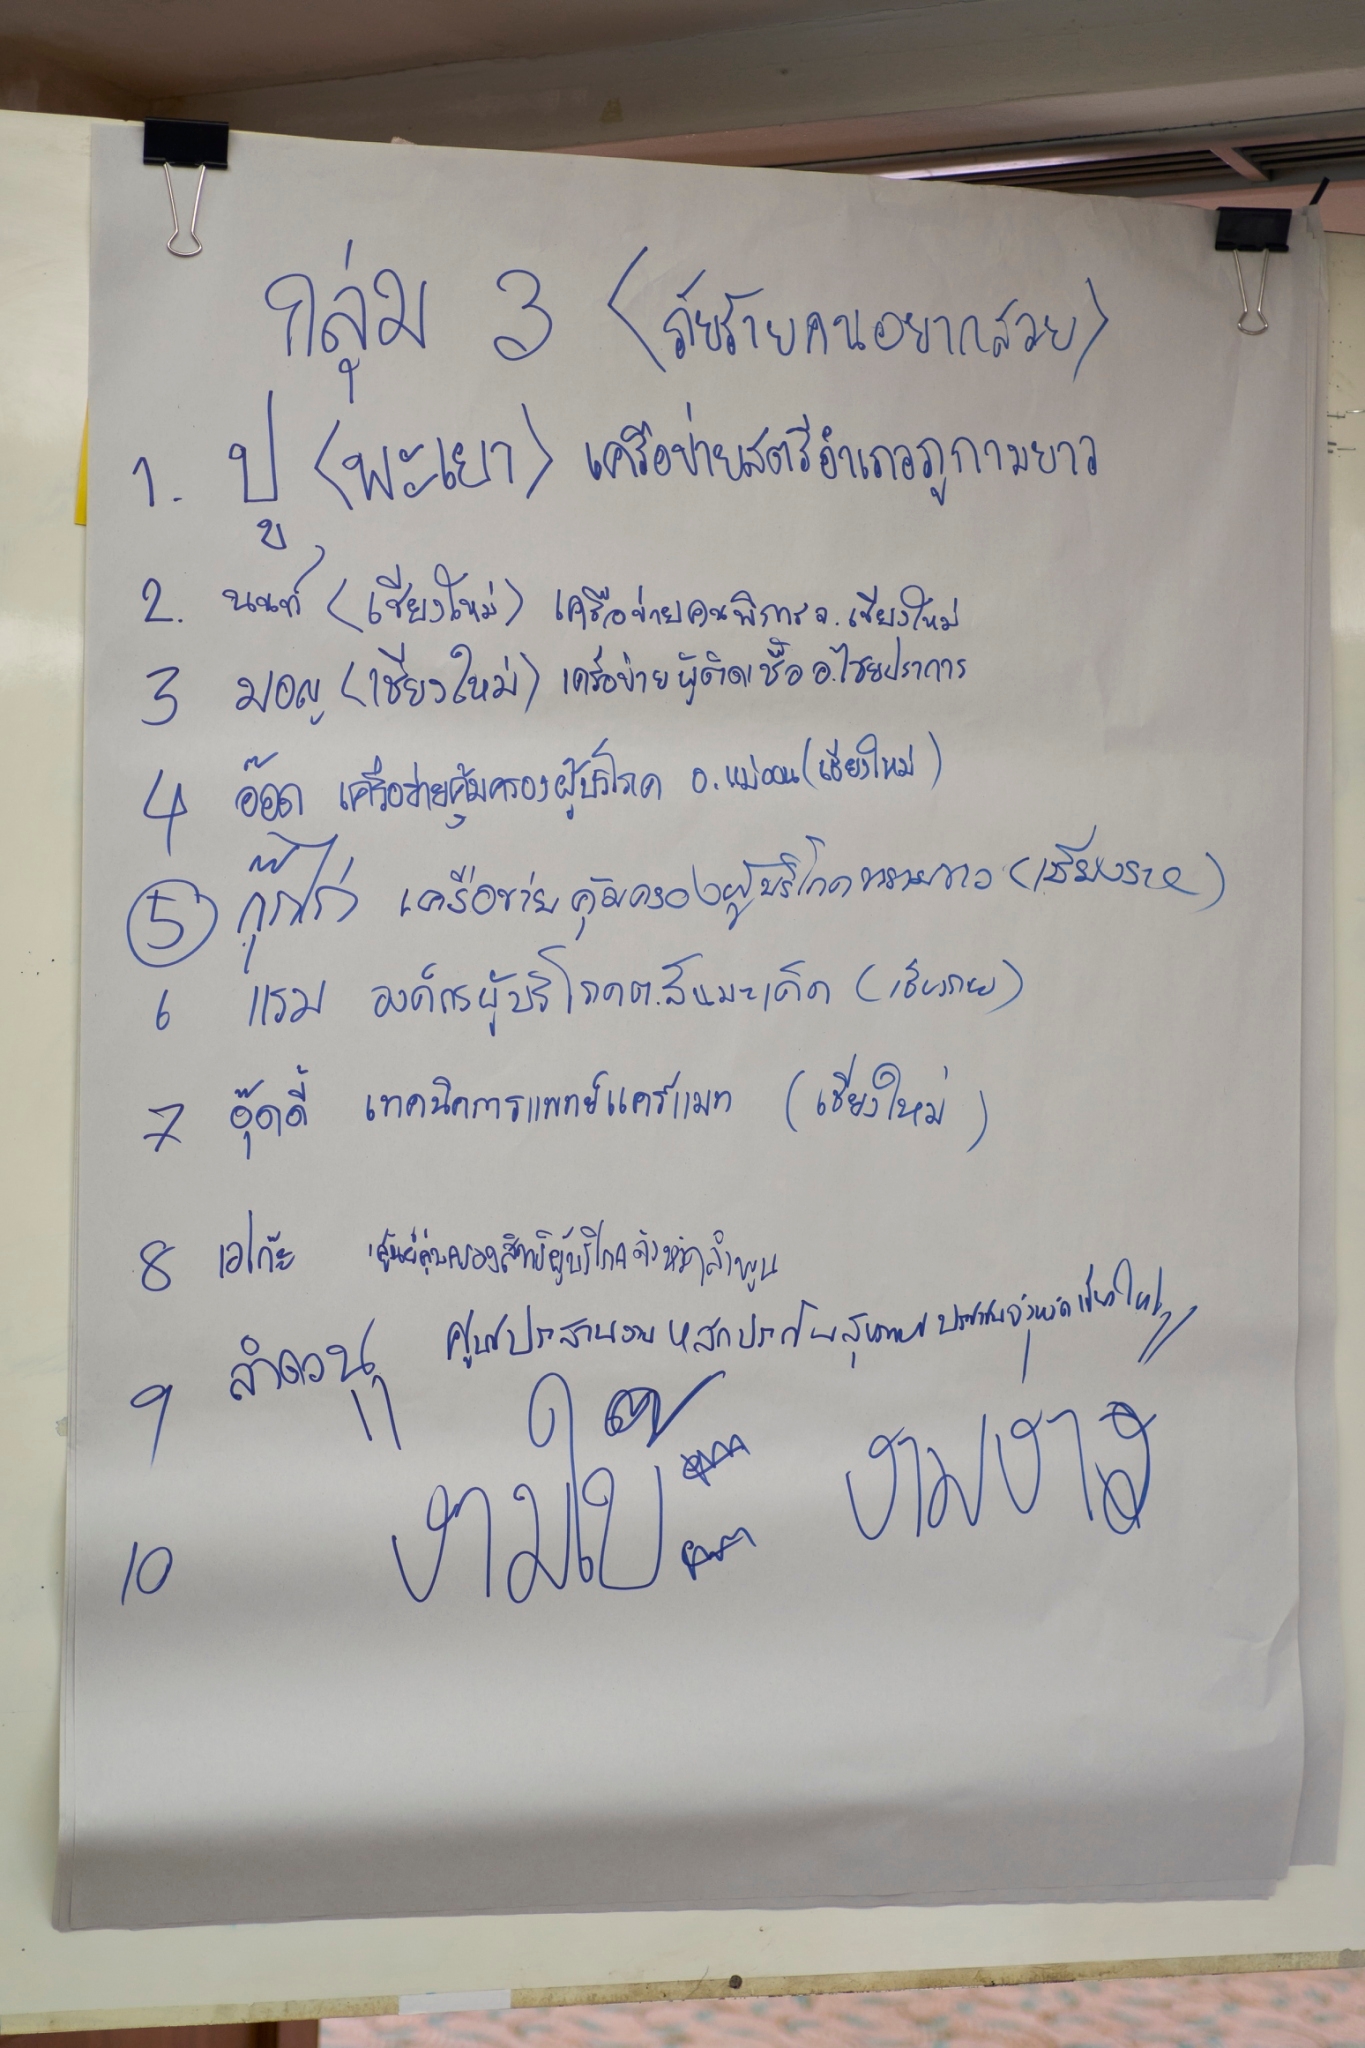 กลุ่ม 3 (ภัยร้ายคนอยากสวย)
1. ปู (พะเยา) เครือข่ายสตรีอำเภอภูกามยาว
2. นนท์ (เชียงใหม่) เครือข่ายคนพิการ จ. เชียงใหม่
3 มอญ (เชียงใหม่) เครือข่ายผู้ติดเชื้อ อ.ไชยปราการ
4 อ๊อด เครือข่ายคุ้มครองผู้บริโภค อ. แม่ออน (เชียงใหม่)
5 เครือข่ายคุ้มครองผู้บริโภค (เชียงราย)
6 แรม องค์กรผู้บริโภค ต. สันมะเค็ด (เชียงราย)
7 อุ๊ดดี้ เทคนิคการแพทย์แคร์แมท (เชียงใหม่)
8 เอโก๊ะ ศูนย์คุ้มครองสิทธิผู้บริโภคจังหวัดลำพูน
9 ลำดวน ศูนย์ประสานงานหลักประกันสุขภาพประชาชนจังหวัดเชียงใหม่
10